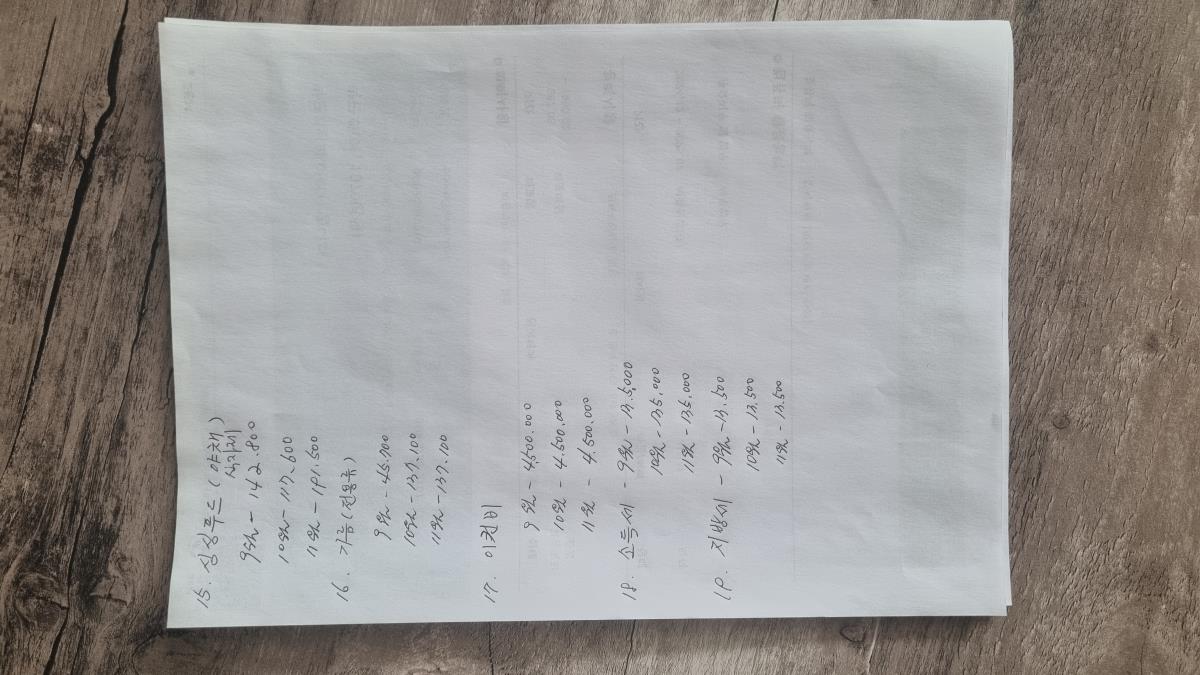 15. 싱싱푸드 ( 야채 )
식자재
9월 - 142.800
10월 - 117.600
11월 - 191.500
16. 기름 (전용유)
9월 - 45.700
10월 - 137.100
11월 - 137.100
17.
9월 - 4,500.000
10월 - 4.500.000
11월 - 4.500.000
18. 소득세 - 9월 - 135,000
10월 - 135,000
11월 - 135,000
19. 지방세 - 9월 - 13.500
10월 - 13.500
11월 - 13.500